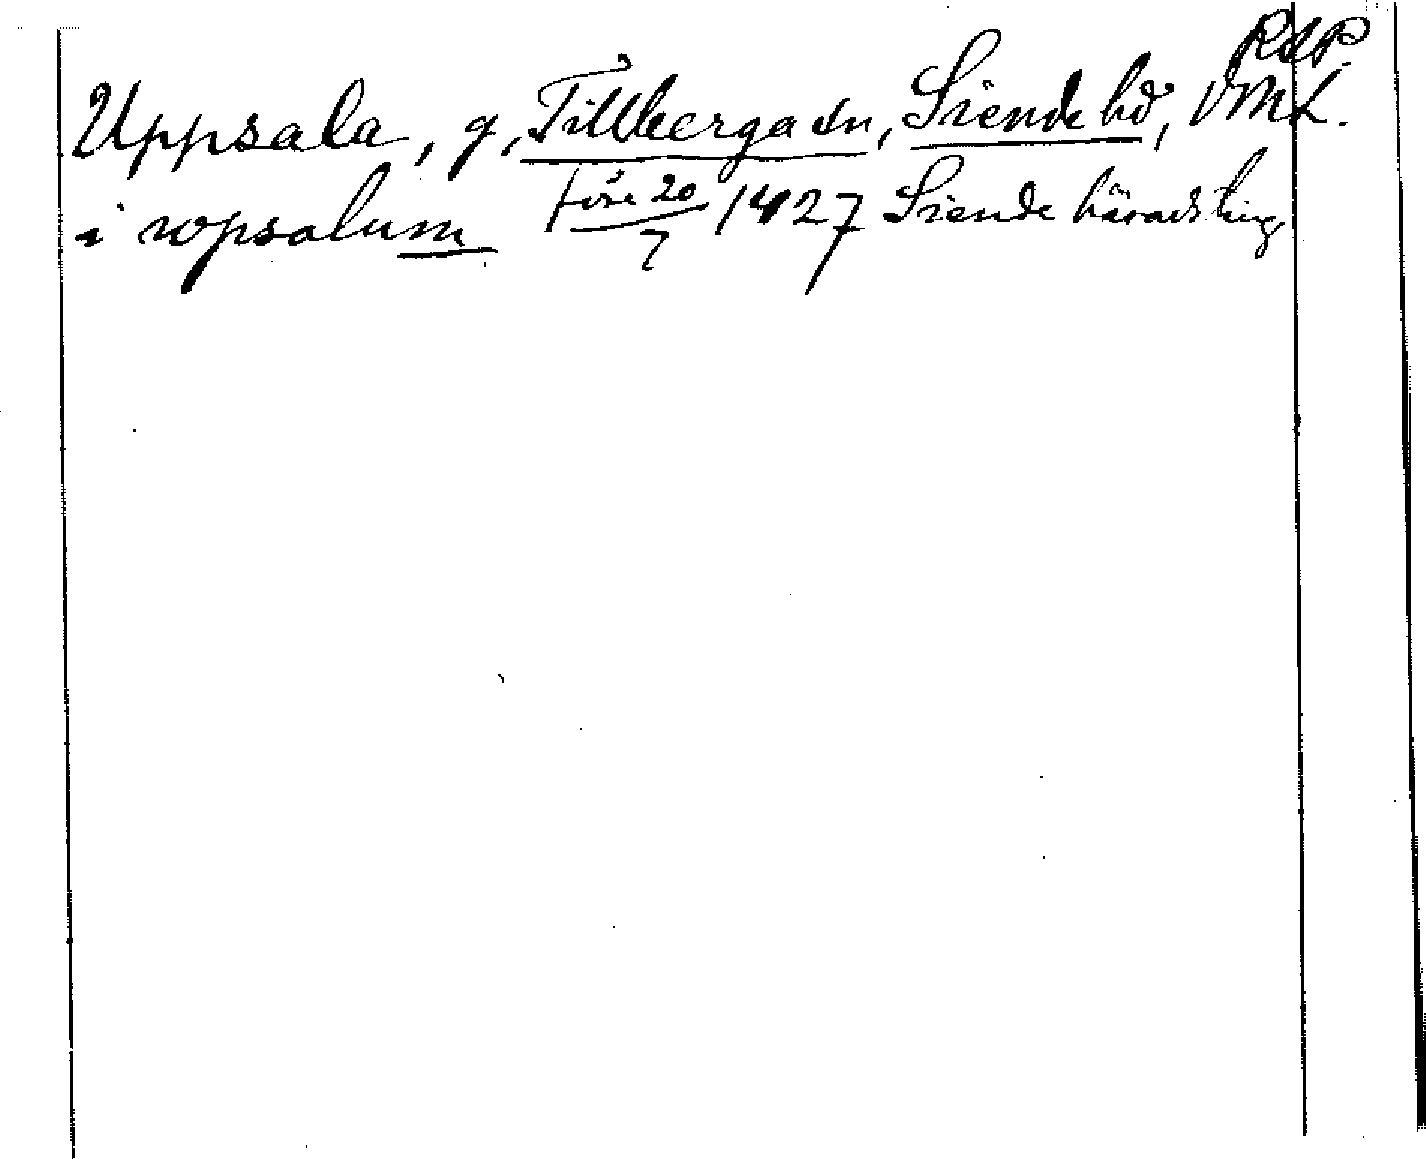 RAP.
Uppsala, g, Tillberga sn, Siende hd, VML.
i wpsalum före 20/7 1427 Siende häradsting